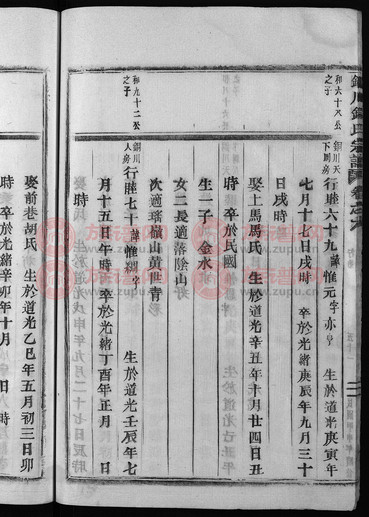 和六十八公
之子
銅川天
下則房
行睦六十九諱惟元字亦
生於道光庚寅年
七月十七日戌時
卒於光緒庚辰年九月三十
日戌時
娶上馬馬氏
生於道光辛丑年十月廿四日丑
時
卒於民國
生一子
金水
女二長適落陰山
次適瑤嶺山黄世青
和九十二公
之子
銅川
人房
行睦七十諱惟綱字
生於道光壬辰年七
月十五日午時
卒於光緒丁酉年正月
日
時
娶前巷胡氏
生於道光乙巳年五月初三日卯
時
卒於光緒辛卯年十月
日
時
族譜网
www.zupu.cn